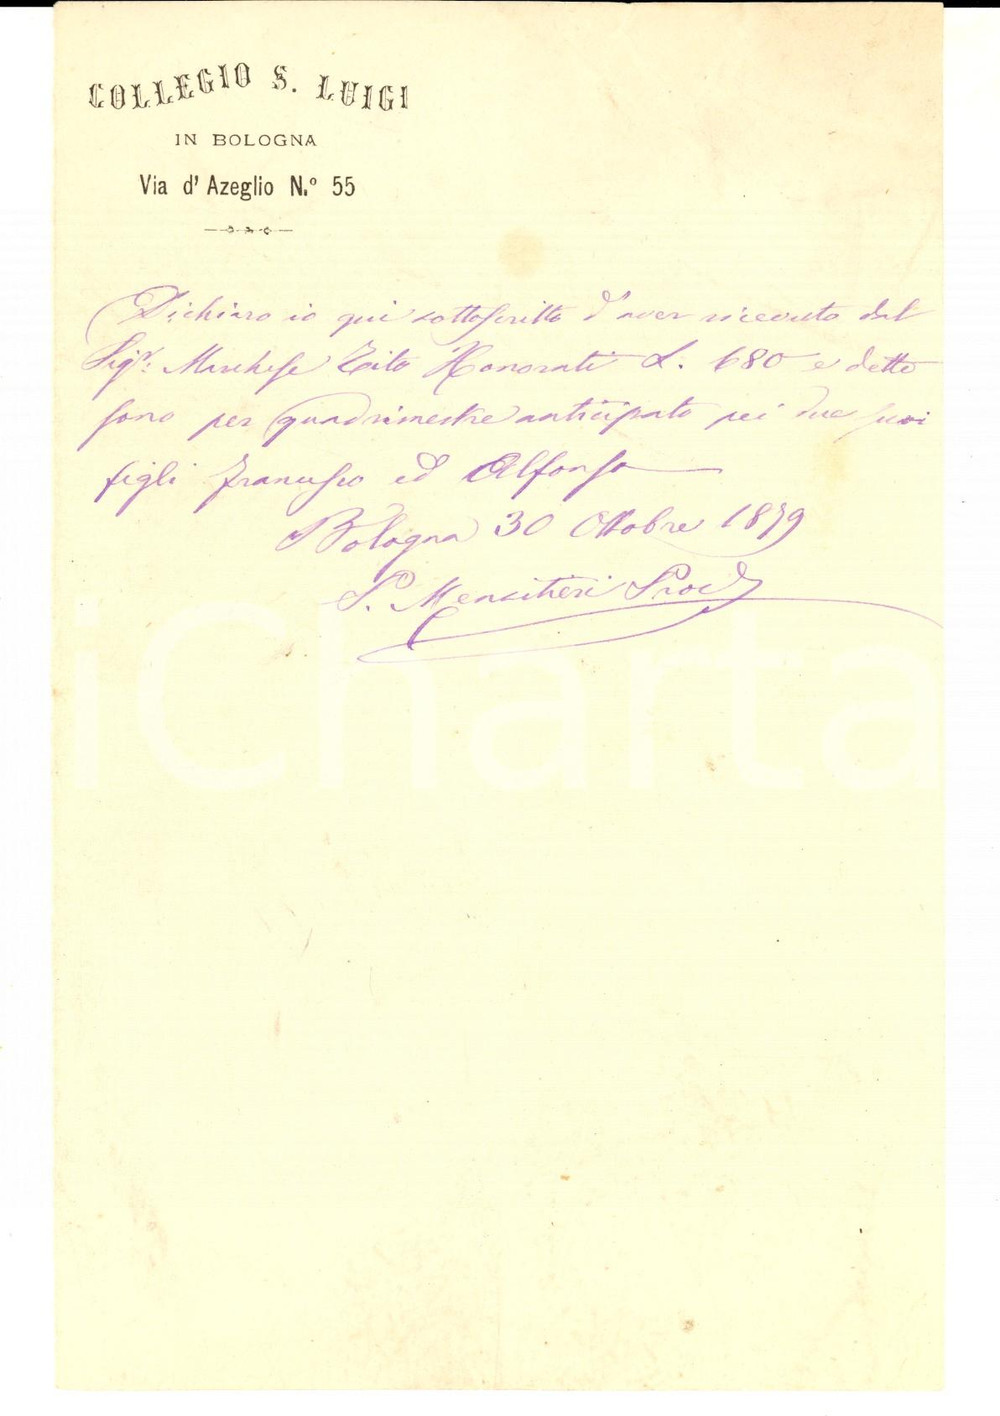 COLLEGIO S. LUIGI
IN BOLOGNA
Via d' Azeglio N.º 55
Dichiaro io qui sottoscritto d'aver ricevuto dal
Sigr: Marchese Tito Honorati L. 680 e dette
sono per quadrimestre anticipato pei due suoi
figli Francesco ed Alfonso
Bologna 30 Ottobre 1879
P. Mensitieri Proc
iCharta